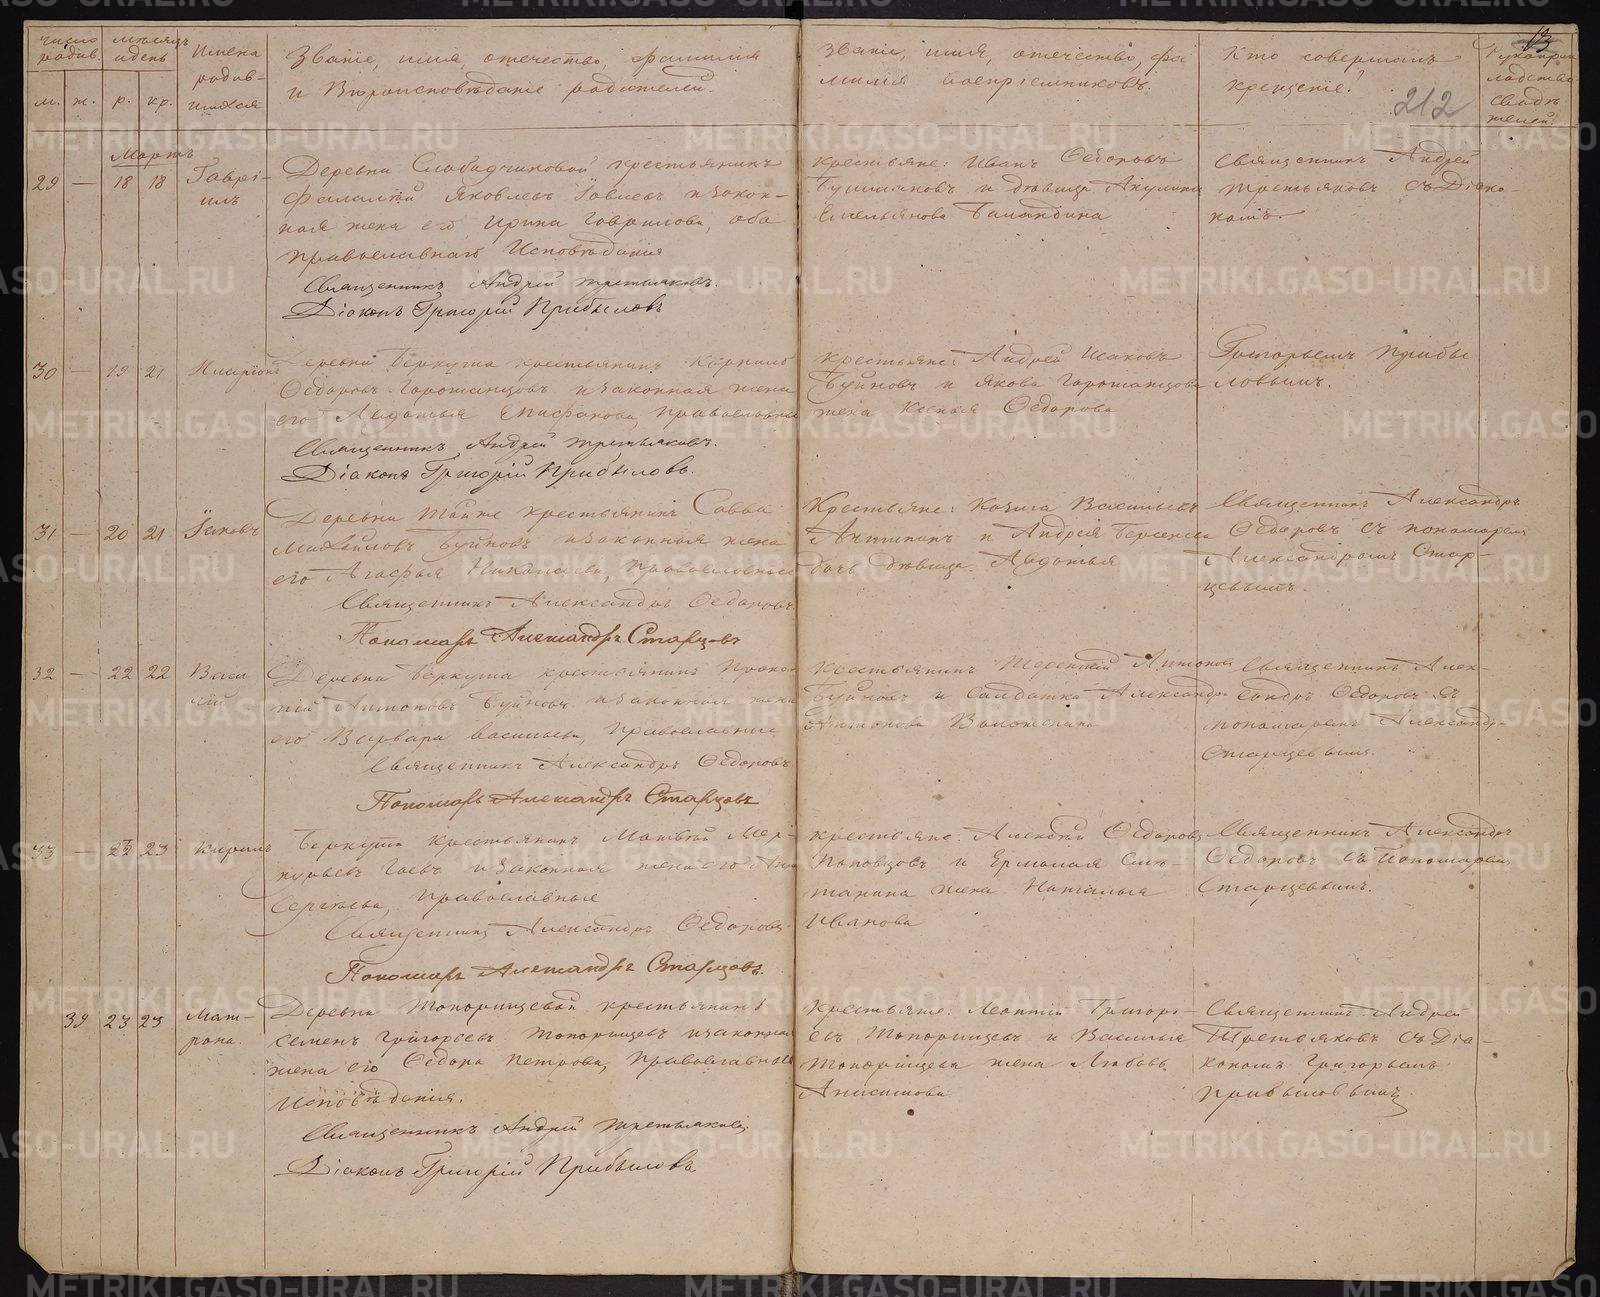 число родив.
мѣсяцъ и день
Имена родив-шихся
Званіе, имя, отечество, фамилія
и Вѣроисповѣданіе родителей.
Званіе, имя, отечество, фа
милія воспріемниковъ.
Кто совершалъ
крещеніе?
Рукоприк
ладство
свидѣ
телей.
13
212
м. ж. р. кр.
Мартъ
29 — 18 18 Гаврі-
илъ
Деревни Слабадчиковой крестьянинъ
Яковлевъ и закон-
ная жена его Ирина Гаврилова, оба
православнаго Исповѣданія
Священникъ Андрей Третьяковъ.
Діаконъ Григорій Прибыловъ
крестьяне: Иванъ Ѳедоровъ
и дѣвица Акулина
Емельянова Баландина
Священникъ Андрей
Третьяковъ съ Діако-
номъ.
30 — 19 21 Иларіонъ
Деревни Беркута крестьянинъ Корнило
Ѳедоровъ Горожанцовъ и законная жена
его Авдотья Епифанова, православные
Священникъ Андрей Третьяковъ.
Діаконъ Григорій Прибыловъ.
крестьяне: Андрей Исаковъ
Буйновъ и Якова Горожанцова
жена Ксенья Ѳедорова
Григорьемъ Прибы
ловымъ.
31 — 20 21 Іаковъ
Деревни крестьянинъ Савва
Михайловъ Буйновъ и законная жена
его Агафья Николаева, православные
Священникъ Александръ Ѳедоровъ
Пономарь Александръ Старцовъ
Крестьяне: Козма Васильевъ
Антипинъ и Андрея Берсенева
дочь дѣвица Авдотья
Священникъ Александръ
Ѳедоровъ съ пономаремъ
Александромъ Стар-
цевымъ.
32 — 22 22 Васи
лій
Деревни Беркута крестьянинъ Проко
пій Антоновъ Буйновъ и законная жена
его Варвара Васильева, православные
Священникъ Александръ Ѳедоровъ
Пономарь Александръ Старцовъ
крестьянинъ Терентій Антоновъ
Буйновъ и Солдатка Александра
Антонова
Священникъ Алек-
сандръ Ѳедоровъ съ
пономаремъ Александр.
Старцевымъ.
33 — 23 23 Кирилъ
Беркута крестьянинъ Матвѣй Мер-
курьевъ Гаевъ и законная жена его Анна
Сергѣева, православные
Священникъ Александръ Ѳедоровъ
Пономарь Александръ Старцовъ.
крестьяне: Алексѣй Ѳедоровъ
Поповцовъ и Ермолая Сме-
танина жена Наталья
Иванова
Священникъ Александръ
Ѳедоровъ съ Пономаремъ
Старцевымъ.
39 23 23 Мат-
рона.
Деревни Топорищевой крестьянинъ
Семенъ Григорьевъ Топорищевъ и законная
жена его Ѳедора Петрова, православнаго
Исповѣданія.
Священникъ Андрей Третьяковъ
Діаконъ Григорій Прибыловъ
крестьяне: Леонтій Григорь-
евъ Топорищевъ и Василья
Топорищева жена Любовь
Анисимова
Священникъ Андрей
Третьяковъ съ Діа-
кономъ Григорьемъ
Прибыловымъ
METRIKI.GASO-URAL.RU